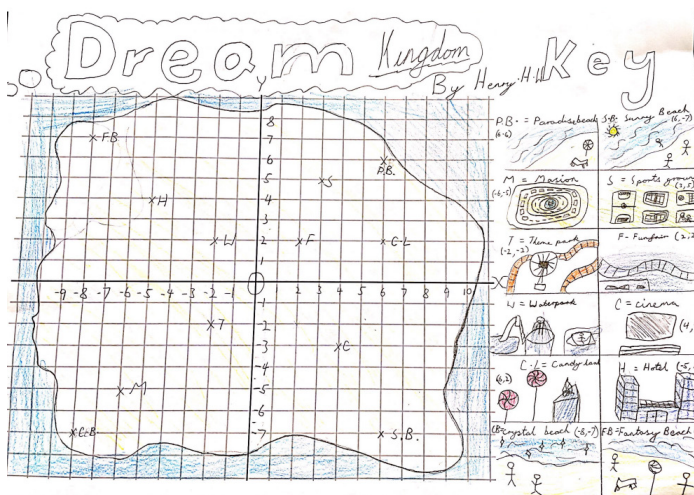 Dream Kingdom Key
By Henry.H.W
Y
8
7
6
5
4
3
2
1
-9 -8 -7 -6 -5 -4 -3 -2 -1 0 1 2 3 4 5 6 7 8 9 10 X
-1
-2
-3
-4
-5
-6
-7
FB
H
W
S
P.B.
F
C.L
T
C
M
C.B.
S.B.
P.B. = Paradise beach
(6,6)
S.B- Sunny Beach
(6,-7)
M = Masion
(-6,-5)
S = Sports groun
(3,5)
T = Theme park
(-2,-2)
F- Funfair (2,2
W = Waterpark
C = cinema
(4,
C.L = Candy land
(6,2)
H = Hotel (-5,
CB= crystal beach (-8,-7)
FB= Fantasy Beach